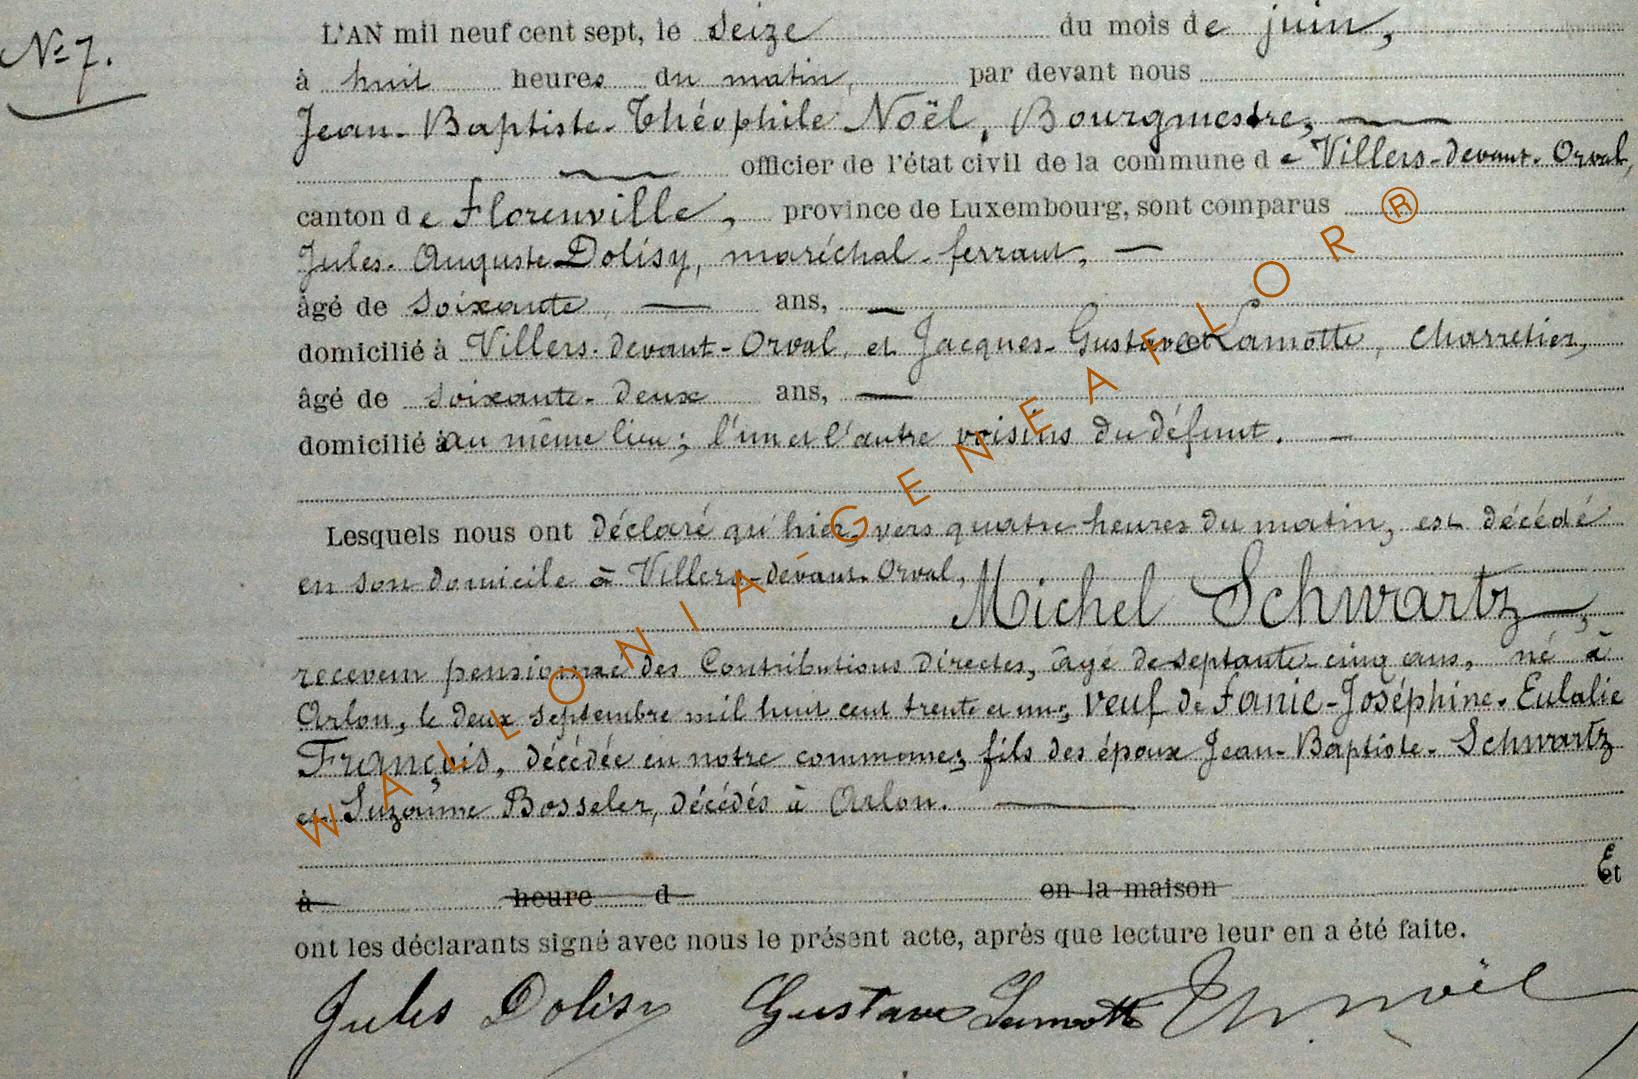 N° 7.
L'AN mil neuf cent sept, le seize du mois de juin,
à huit heures du matin, par devant nous
Jean-Baptiste-Théophile Noël, Bourgmestre,
officier de l'état civil de la commune de Villers-devant-Orval,
canton de Florenville, province de Luxembourg, sont comparus
Jules-Auguste Dolisy, maréchal-ferrant,
âgé de soixante ans,
domicilié à Villers-devant-Orval, et Jacques-Gustave Lamotte, charretier,
âgé de soixante-deux ans,
domicilié au même lieu; l'un et l'autre voisins du défunt.
Lesquels nous ont déclaré qu'hier, vers quatre heures du matin, est décédé
en son domicile à Villers-devant-Orval,
Michel Schwartz,
receveur pensionné des Contributions directes, âgé de septante-cinq ans, né à
Arlon, le deux septembre mil huit cent trente et un; veuf de Fanie-Joséphine-Eulalie
François, décédée en notre commune; fils des époux Jean-Baptiste-Schwartz
et Suzanne Bosseler, décédés à Arlon.
à heure d en la maison Et
ont les déclarants signé avec nous le présent acte, après que lecture leur en a été faite.
Jules Dolisy Gustave Lamotte Th Noël
WALLONIA-GENEAFLOR®